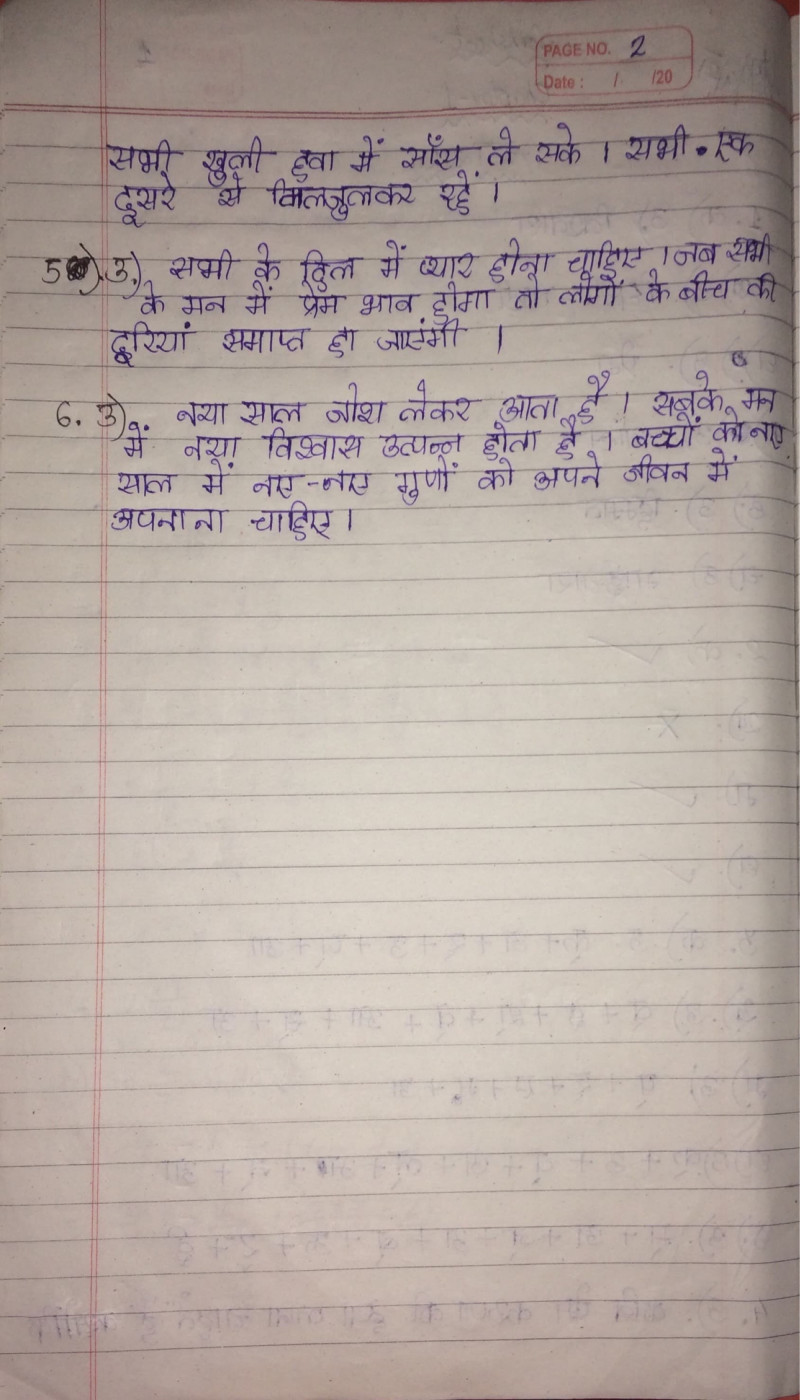 PAGE NO. 2
Date : / /20
सभी खुली हवा में साँस ले सके । सभी एक
दूसरे से मिलजुलकर रहें ।
5) उ) सभी के दिल में प्यार होना चाहिए । जब सभी
के मन में प्रेम भाव होगा तो लोगों के बीच की
दूरियां समाप्त हो जाएंगी ।
6. उ) नया साल जोश लेकर आता है । सबके मन
में नया विश्वास उत्पन्न होता है । बच्चों को नए
साल में नए-नए गुणों को अपने जीवन में
अपनाना चाहिए ।